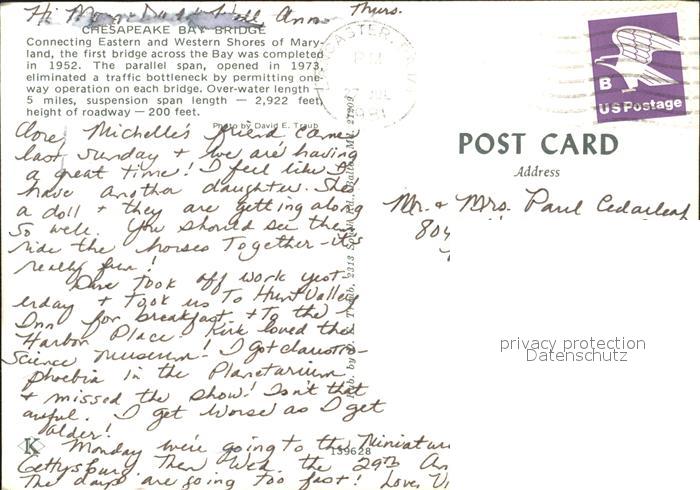 Hi Mom + Dad + Nell Ann Thurs.
CHESAPEAKE BAY BRIDGE
Connecting Eastern and Western Shores of Mary-
land, the first bridge across the Bay was completed
in 1952. The parallel span, opened in 1973,
eliminated a traffic bottleneck by permitting one-
way operation on each bridge. Over-water length -
5 miles, suspension span length — 2,922 feet,
height of roadway — 200 feet.
Photo by David E. Traub
Michelle's friend came
last Sunday + we are having
a great time! I feel like I
have another daughter. She's
a doll + they are getting along
so well. You should see them
ride the horses together - it's
really fun!
Dave took off work yest-
erday + took us to Hunt Valley
Inn for breakfast + to the
Harbor Place. Kirk loved the
Science Museum! I got claustro-
phoebia in the Planetarium
+ missed the show! Isn't that
awful. I get worse as I get
older!
Monday we're going to the Miniature
Gettysburg Then Wed. the 29th An
The days are going too fast! Love, Vi
K
139628
PM
B
US Postage
POST CARD
Address
Mr. + Mrs. Paul Cedarleaf
804
privacy protection
Datenschutz